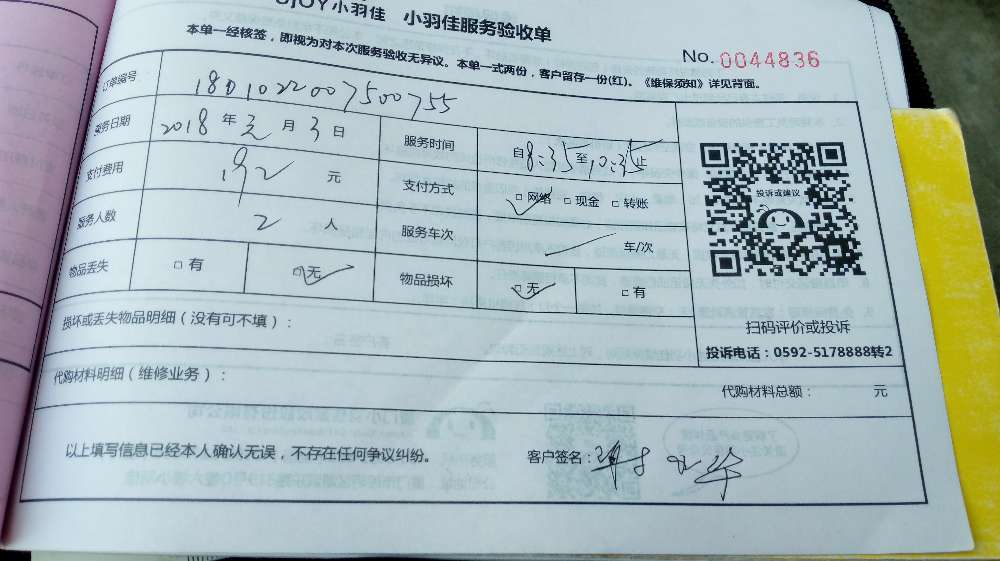 JOY小羽佳 小羽佳服务验收单
本单一经核签，即视为对本次服务验收无异议。本单一式两份，客户留存一份(红)。《维保须知》详见背面。
No. 0044836
订单编号 1801022007500755
服务日期 2018年元月3日 服务时间 自8:35至10:35止
支付费用 192元 支付方式 □网络 □现金 □转账
服务人数 2人 服务车次 车/次
物品丢失 □有 □无 物品损坏 □无 □有
投诉或建议
扫码评价或投诉
投诉电话：0592-5178888转2
损坏或丢失物品明细（没有可不填）：
代购材料明细（维修业务）： 代购材料总额： 元
以上填写信息已经本人确认无误，不存在任何争议纠纷。 客户签名：